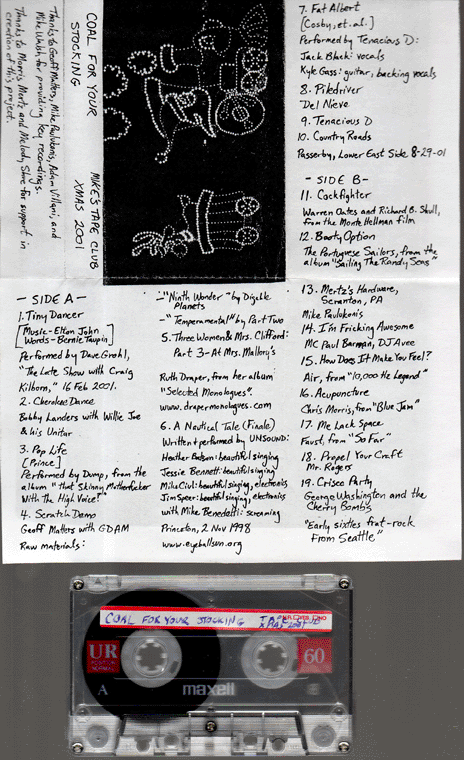 COAL FOR YOUR
STOCKING
MIKE'S TAPE CLUB
XMAS 2001
Thanks to Geoff Matters, Mike Paulukonis, Adam Villani, and
Mike Walsh for providing key recordings.
Thanks to Morris Mertz and Melody Shore for support in
creation of this project.
- SIDE A -
1. Tiny Dancer
[Music - Elton John
Words - Bernie Taupin]
Performed by Dave Grohl,
"The Late Show with Craig
Kilborn," 16 Feb 2001.
2. Cherokee Dance
Bobby Landers with Willie Joe
& his Unitar
3. Pop Life
[Prince]
Performed by Dump, from the
album "That Skinny Motherfucker
With The High Voice?"
4. Scratch Demo
Geoff Matters with GDAM
Raw materials:
- "Ninth Wonder" by Digable
Planets
- "Temperamental" by Part Two
5. Three Women & Mrs. Clifford:
Part 3 - At Mrs. Mallory's
Ruth Draper, from her album
"Selected Monologues".
www.drapermonologues.com
6. A Nautical Tale (Finale)
Written + performed by UNSOUND:
Heather Batson: beautiful singing
Jessie Bennett: beautiful singing
Mike Ciul: beautiful singing, electronics
Jim Speer: beautiful singing, electronics
with Mike Benedetti: screaming
Princeton, 2 Nov 1998
www.eyeballsun.org
7. Fat Albert
[Cosby, et. al.]
Performed by Tenacious D:
Jack Black: vocals
Kyle Gass: guitar, backing vocals
8. Piledriver
Del Nieve
9. Tenacious D
10. Country Roads
Passerby, Lower East Side 8-29-01
- SIDE B -
11. Cockfighter
Warren Oates and Richard B. Shull,
from the Monte Hellman film
12. Booty Option
The Portuguese Sailors, from the
album "Sailing The Randy Seas"
13. Mertz's Hardware,
Scranton, PA
Mike Paulukonis
14. I'm Fricking Awesome
MC Paul Barman, DJ Avee
15. How Does It Make You Feel?
Air, from "10,000 Hz Legend"
16. Acupuncture
Chris Morris, from "Blue Jam"
17. Me Lack Space
Faust, from "So Far"
18. Propel Your Craft
Mr. Rogers
19. Crisco Party
George Washington and the
Cherry Bombs
"Early sixties frat-rock
from Seattle"
COAL FOR YOUR STOCKING
TAPE CLUB
XMAS 2001
UR
60
A
maxell